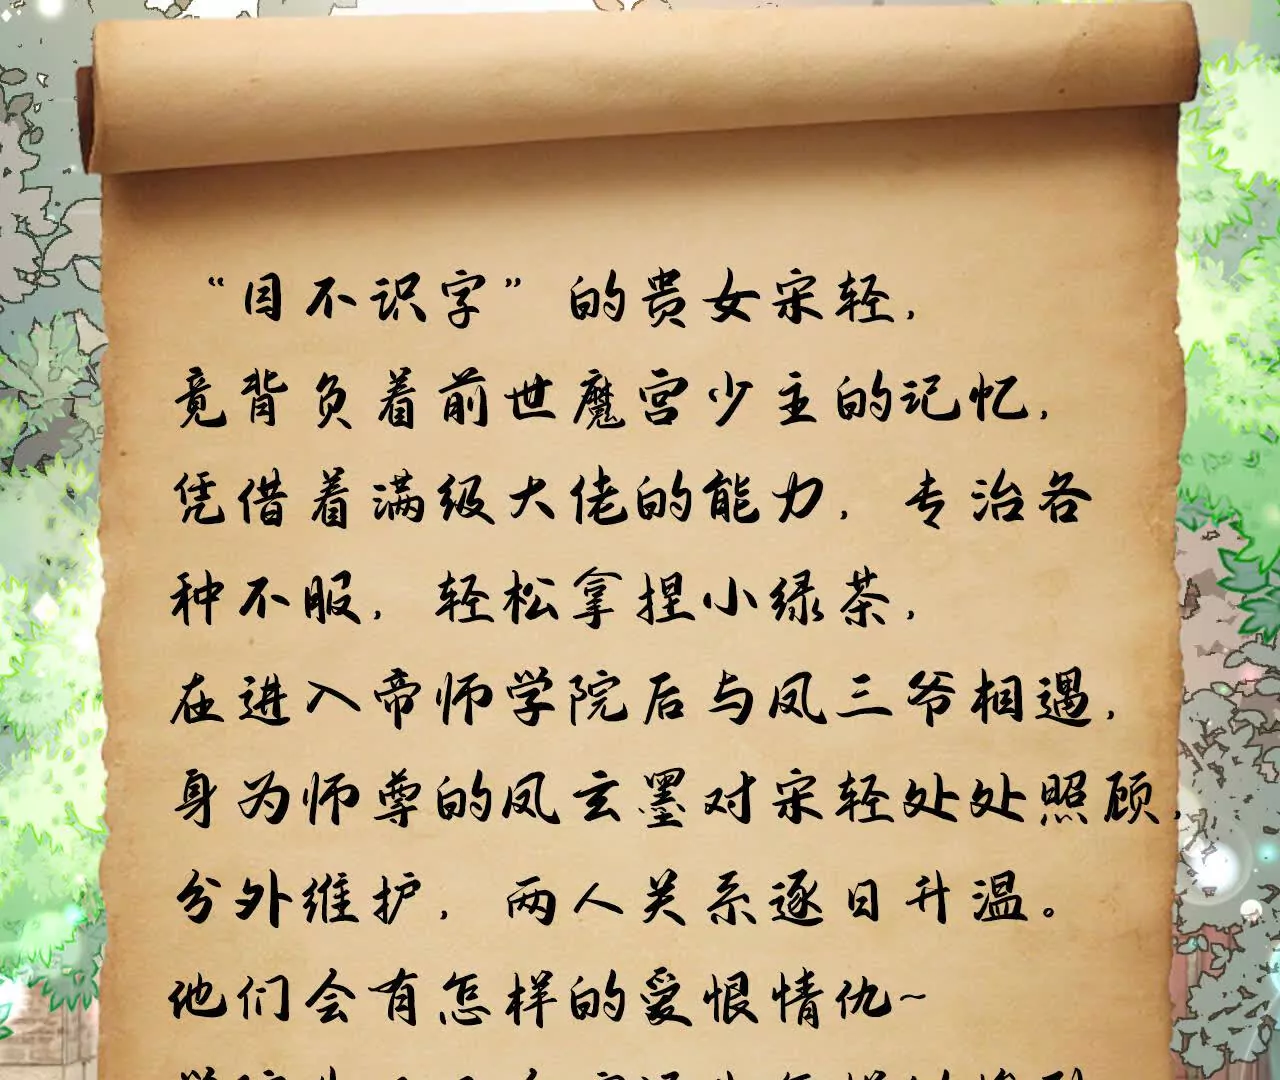 “目不识字”的贵女宋轻,
竟背负着前世魔宫少主的记忆,
凭借着满级大佬的能力, 专治各
种不服, 轻松拿捏小绿茶,
在进入帝师学院后与凤三爷相遇,
身为师尊的凤玄墨对宋轻处处照顾,
分外维护, 两人关系逐日升温。
他们会有怎样的爱恨情仇~